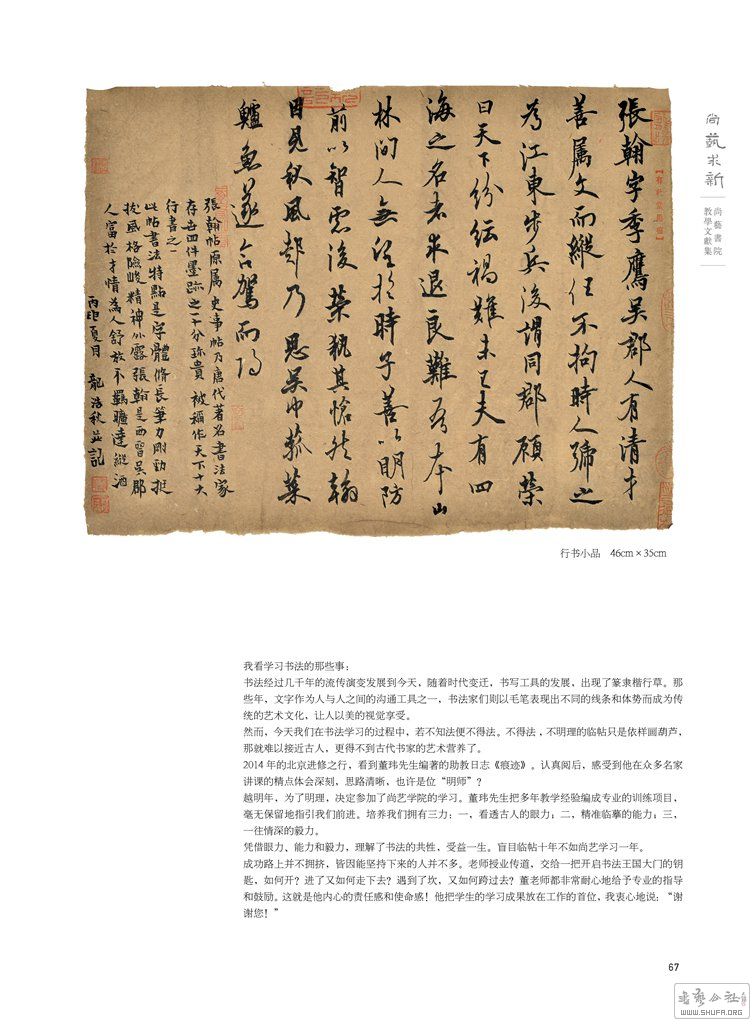 張翰字季鷹吳郡人有清才
善属文而縱任不拘時人號之
為江東步兵後謂同郡顧榮
曰天下紛紜禍難未已夫有四
海之名者求退良難吾本山
林間人無望於時子善以明防
前以智慮後榮執其愴然翰
因見秋風起乃思吳中菰菜
鱸魚遂命駕而歸
張翰帖原属史事帖乃唐代著名書法家
存世四件墨跡之一十分珎貴 被稱作天下十大
行書之一
此帖書法特點是字體脩長筆力剛勁挺
拔風格險峻精神外露張翰是西晉吳郡
人富於才情為人舒放不羈曠達縱酒
丙申夏月 龍浩秋並記
尚藝求新
尚藝書院
教學文獻集
行书小品 46cm×35cm
我看学习书法的那些事：
书法经过几千年的流传演变发展到今天，随着时代变迁，书写工具的发展，出现了篆隶楷行草。那
些年，文字作为人与人之间的沟通工具之一，书法家们则以毛笔表现出不同的线条和体势而成为传
统的艺术文化，让人以美的视觉享受。
然而，今天我们在书法学习的过程中，若不知法便不得法。不得法，不明理的临帖只是依样画葫芦，
那就难以接近古人，更得不到古代书家的艺术营养了。
2014年的北京进修之行，看到董玮先生编著的助教日志《痕迹》。认真阅后，感受到他在众多名家
讲课的精点体会深刻，思路清晰，也许是位“明师”？
越明年，为了明理，决定参加了尚艺学院的学习。董玮先生把多年教学经验编成专业的训练项目，
毫无保留地指引我们前进。培养我们拥有三力：一，看透古人的眼力；二，精准临摹的能力；三，
一往情深的毅力。
凭借眼力、能力和毅力，理解了书法的共性，受益一生。盲目临帖十年不如尚艺学习一年。
成功路上并不拥挤，皆因能坚持下来的人并不多。老师授业传道，交给一把开启书法王国大门的钥
匙，如何开？进了又如何走下去？遇到了坎，又如何跨过去？董老师都非常耐心地给予专业的指导
和鼓励。这就是他内心的责任感和使命感！他把学生的学习成果放在工作的首位，我衷心地说：“谢
谢您！”
67
書藝公社
WWW.SHUFA.ORG